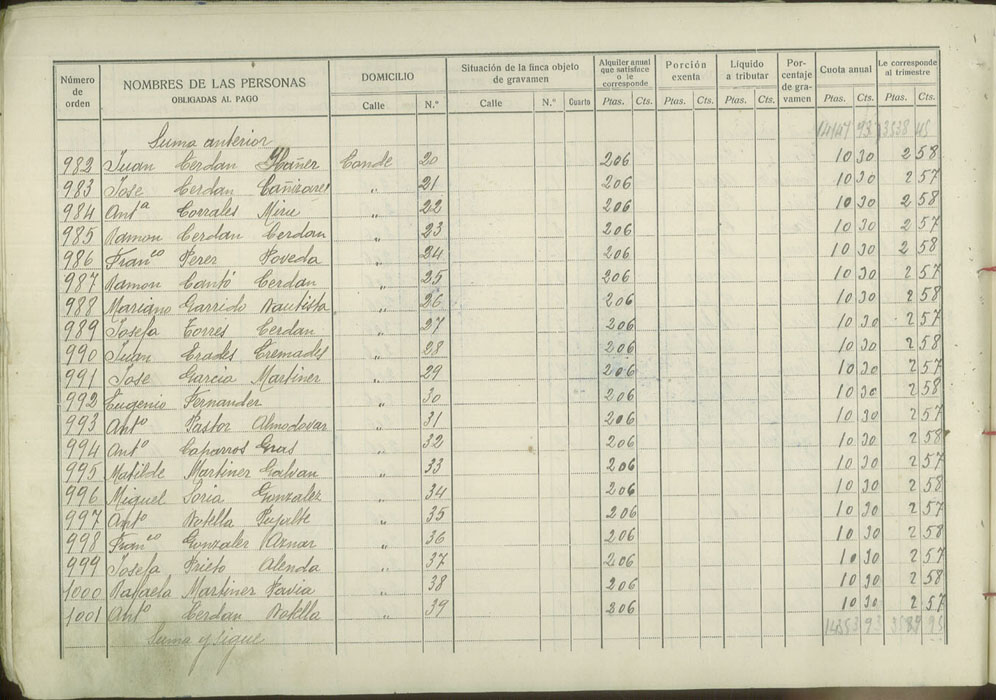 Número de orden NOMBRES DE LAS PERSONAS OBLIGADAS AL PAGO DOMICILIO Calle N.º Situación de la finca objeto de gravamen Calle N.º Cuarto Alquiler anual que satisface o le corresponde Ptas. Cts. Porción exenta Ptas. Cts. Líquido a tributar Ptas. Cts. Porcentaje de gravamen Cuota anual Ptas. Cts. Le corresponde al trimestre Ptas. Cts.
Suma anterior 14147 93 3538 45
982 Juan Cerdan Ibañez Conde 20 206 10 30 2 58
983 Jose Cerdan Cañizares " 21 206 10 30 2 57
984 Antª Corrales " 22 206 10 30 2 58
985 Ramon Cerdan Cerdan " 23 206 10 30 2 57
986 Franco Perez Poveda " 24 206 10 30 2 58
987 Ramon Cantó Cerdan " 25 206 10 30 2 57
988 Mariano Garrido Bautista " 26 206 10 30 2 58
989 Josefa Torres Cerdan " 27 206 10 30 2 57
990 Juan Erades Cremades " 28 206 10 30 2 58
991 Jose Garcia Martinez " 29 206 10 30 2 57
992 Eugenio Fernandez " 30 206 10 30 2 58
993 Antº Pastor Almodovar " 31 206 10 30 2 57
994 Antº Caparros Gras " 32 206 10 30 2 58
995 Matilde Martinez Galvan " 33 206 10 30 2 57
996 Miguel Soria Gonzalez " 34 206 10 30 2 58
997 Antº Botella Pujalte " 35 206 10 30 2 57
998 Franco Gonzalez Aznar " 36 206 10 30 2 58
999 Josefa Prieto Alenda " 37 206 10 30 2 57
1000 Rafaela Martinez Pavia " 38 206 10 30 2 58
1001 Antº Cerdan Botella " 39 206 10 30 2 57
Suma y sigue 14353 93 3589 95